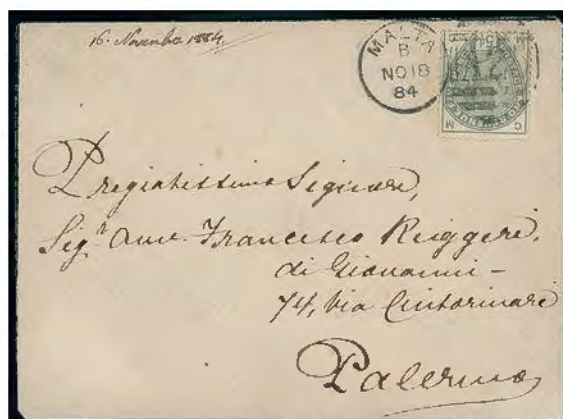 16. November 1884.
MALTA
B
NO 18
84
Pregiatissimo Signore,
Sigr. Avv. Francesco Ruggeri.
di Giovanni –
74, Via Cintorinari
Palermo